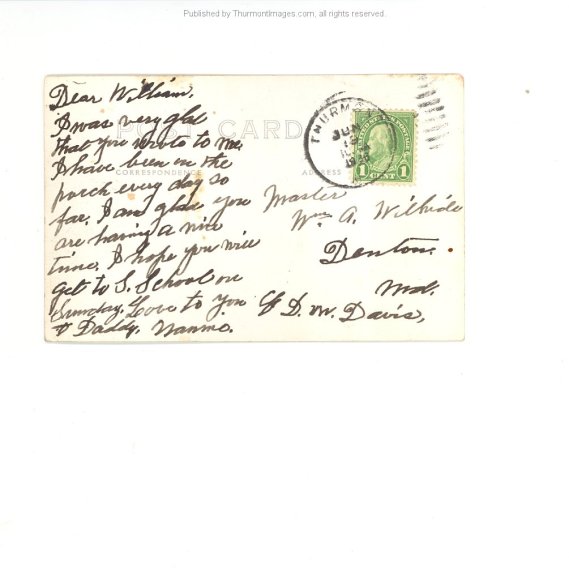 Published by ThurmontImages.com, all rights reserved.
POST CARD
CORRESPONDENCE
ADDRESS
Dear William.
I was very glad
that you wrote to me.
I have been on the
porch every day so
far. I am glad you
are having a nice
time. I hope you will
get to S. School on
Sunday. Love to you
& Daddy. Nanmo.
THURMO
JUN
1 CENT 1
Master
Wm A. Wilhide
Denton.
Md.
℅ D. W. Davis,